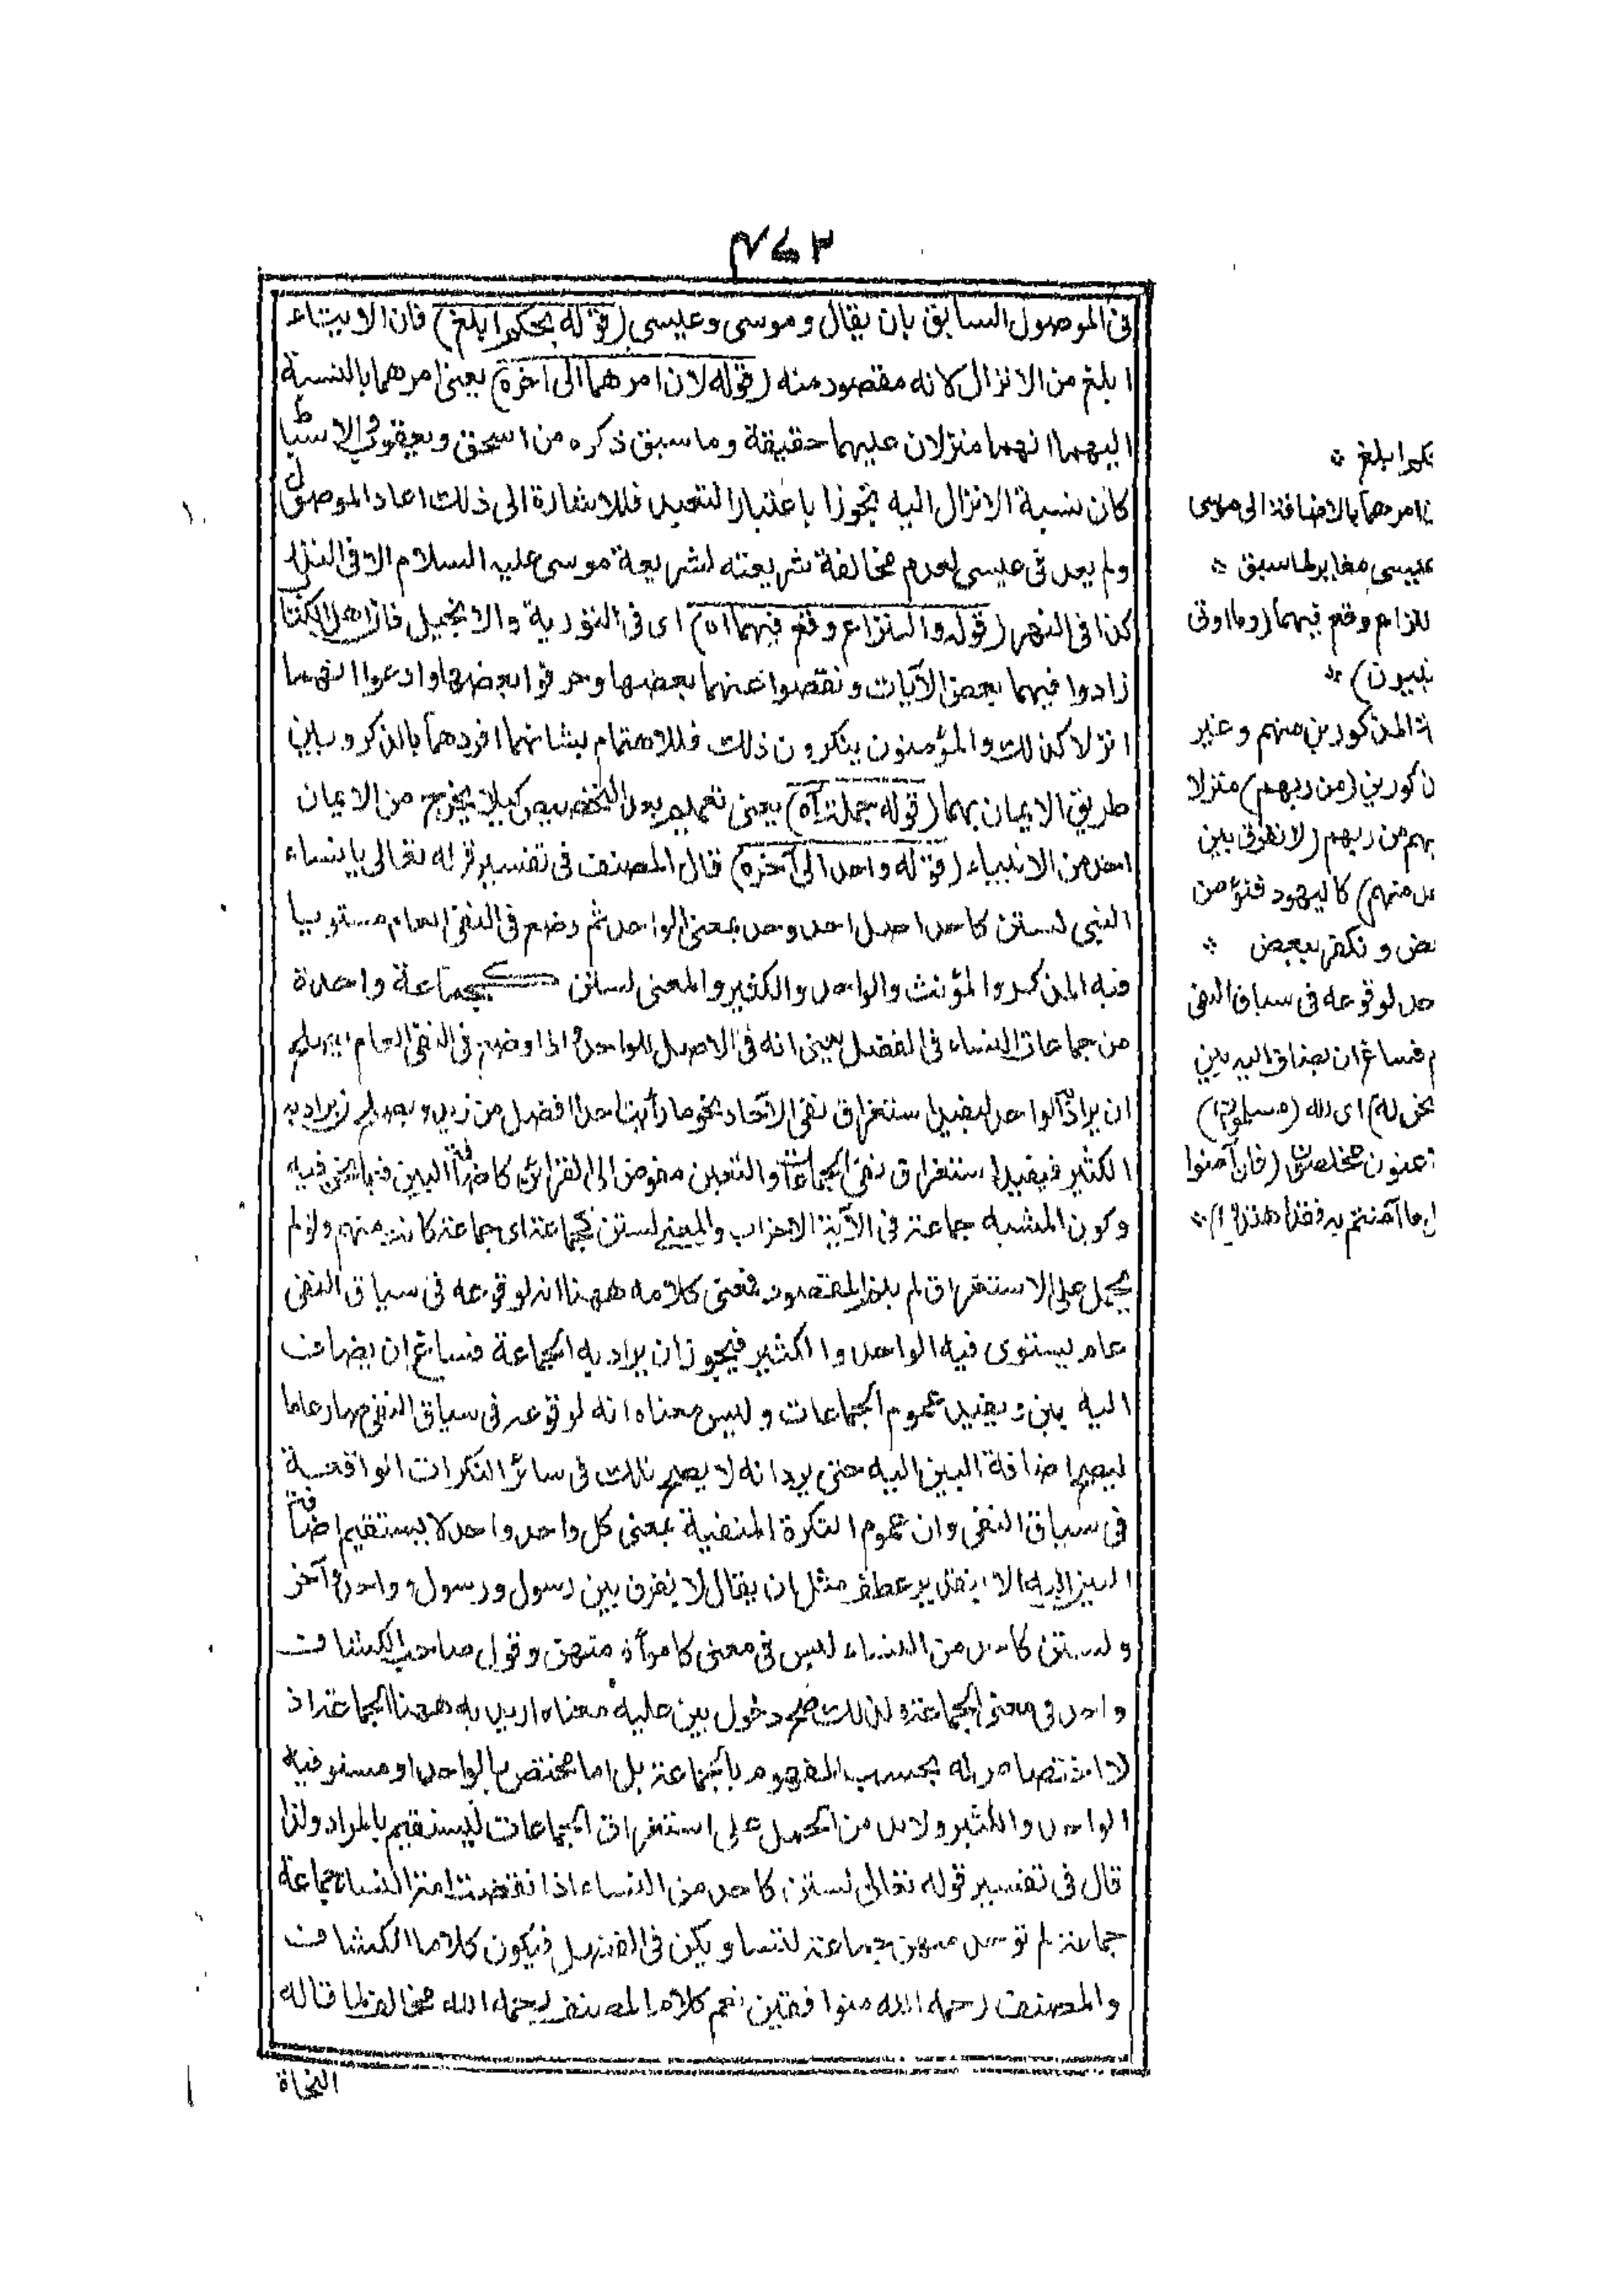 ٤٧٢
في الموصول السابق بان يقال و موسى وعيسى (قوله بحكم ابلغ) فان الايتاء
ابلغ من الانزال لانه مقصود منه (قوله لان امرهما الى اخره) يعنى امرهما بالنسبة
اليهما انهما منزلان عليهما حقيقة وما سبق ذكره من اسحق ويعقوب والاسباط
كان نسبة الانزال اليه تجوزا باعتبار التعبد فللاشارة الى ذلك اعاد الموصول
ولم يعد في عيسى لعدم مخالفة شريعته لشريعة موسى عليه السلام الا في النزر
كذا في النهر (قوله والنزاع وقع فيهما اه) اى في التورية والانجيل فان اهل الكتاب
زادوا فيهما بعض الآيات ونقصوا عنهما بعضها وحرفوا بعضها وادعوا انهما
انزلا كذلك والمؤمنون ينكرون ذلك فللاهتمام بشانهما افردهما بالذكر وبين
طريق الايمان بهما (قوله جملة اه) يعنى تعميم بعد التخصيص كيلا يخرج من الايمان
احد من الانبياء (قوله واحد الى آخره) قال المصنف في تفسير قوله تعالى يا نساء
النبي لستن كاحد اصل احد وحد بمعنى الواحد ثم وضع في النفي العام مستويا
فيه المذكر والمؤنث والواحد والكثير والمعنى لستن كجماعة واحدة
من جماعات النساء في الفضل يعنى انه في الاصل للواحد و اذا وضع في النفي العام يصلح
ان يراد الواحد ليفيد استغراق نفى الآحاد نحو ما رأيت احدا افضل من زيد ويصلح ان يراد به
الكثير فيفيد استغراق نفى الجماعات والتعين مفوض الى القرائن كاضافة البين فيما نحن فيه
وكون المشبه جماعة في الآية الاحزاب والمعنى لستن كجماعة اى جماعة كانت منهم ولو لم
يحمل على الاستغراق لم يفد المقصود فمعنى كلامه ههنا انه لوقوعه في سياق النفى
عام يستوى فيه الواحد و الكثير فيجوز ان يراد به الجماعة فساغ ان يضاف
اليه بين ويفيد عموم الجماعات وليس معناه انه لوقوعه في سياق النفي صار عاما
ليصح اضافة البين اليه حتى يرد انه لا يصح ذلك في سائر النكرات الواقعة
في سياق النفى وان عموم النكرة المنفية بمعنى كل واحد واحد لا يستقيم اضافة
البين اليه الا بتقدير عطف مثل ان يقال لا نفرق بين رسول ورسول و واحد وآخر
ولستن كاحد من النساء ليس في معنى كامرأة منهن وقول صاحب الكشاف
واحد في معنى الجماعة ولذلك صح دخول بين عليه معناه اريد به ههنا الجماعة اذ
لا اختصاص له بحسب المفهوم بالجماعة بل اما مختص بالواحد او مستو فيه
الواحد والكثير ولابد من الحمل على استغراق الجماعات ليستقيم بالمراد ولذا
قال في تفسير قوله تعالى لستن كاحد من النساء اذا تقضت امة النساء جماعة
جماعة لم توجد منهن جماعة لتساويكن في الفضل فيكون كلاما الكشاف
والمصنف رحمه الله متوافقين نعم كلام المصنف رحمه الله مخالف لما قاله
النحاة
ابلغ *
امرهما بالاضافة الى موسى
عيسى مغاير لما سبق *
للنزاع وقع فيهما (وما اوتى
المذكورين منهم وغير
(من ربهم) منزلا
من ربهم (لا نفرق بين
منهم) كاليهود فنؤمن
ونكفر ببعض *
لوقوعه في سياق النفى
فساغ ان يضاف اليه بين
اى لله (مسلمون)
مخلصون (فان آمنوا
ما آمنتم به فقد اهتدوا) *